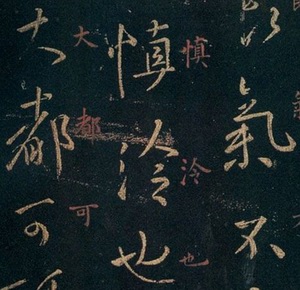 氣不
慎泠也
慎泠也
大都可
大都可